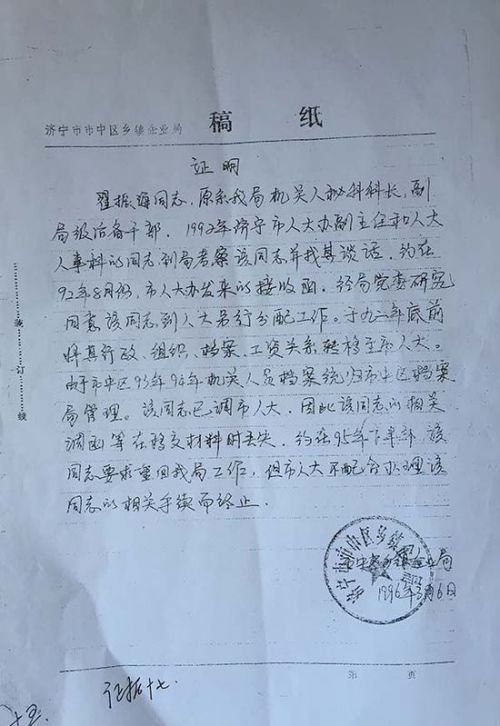 济宁市市中区乡镇企业局 稿纸
证明
翟振海同志,原系我局机关人秘科科长,副
局级后备干部,1992年济宁市人大办副主任和人大
人事科的同志到局考察该同志并找其谈话,约在
92年8月份,市人大办发来的接收函,经局党委研究
同意该同志到人大另行分配工作。于九二年底前
将其行政、组织、档案、工资关系转移至市人大。
由于市中区93年94年机关人员档案统归市中区档案
局管理。该同志已调市人大,因此该同志的相关
调函等在移交材料时丢失,约在95年下半年,该
同志要求重回我局工作,但市人大不配合办理该
同志的相关手续而终止。
市中区乡镇企业局
1996年3月6日
装订线
第 页
证据十七